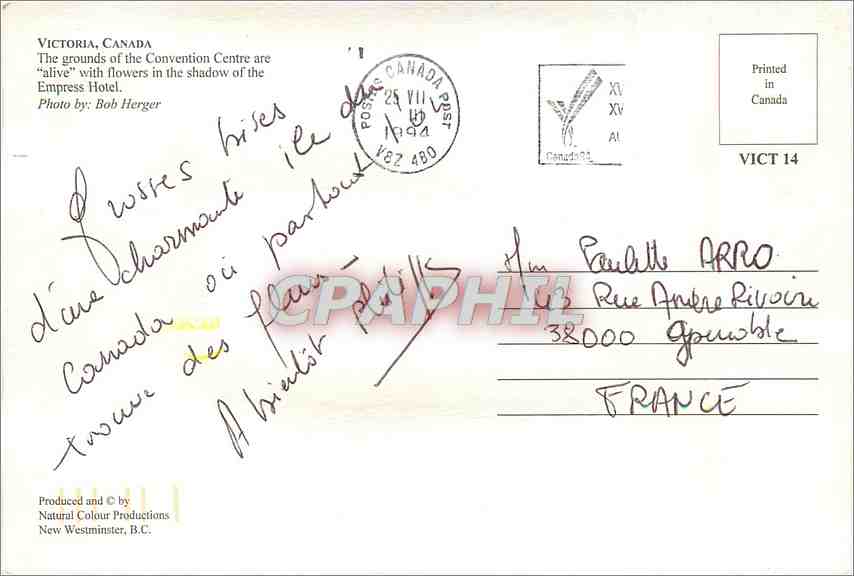 VICTORIA, CANADA
The grounds of the Convention Centre are
“alive” with flowers in the shadow of the
Empress Hotel.
Photo by: Bob Herger
POSTES CANADA POST
25 VII
1994
V8Z 4B0
XV
XV
Canada94
Printed
in
Canada
VICT 14
Grosses bises
d'une charmante île du
Canada où partout
trouve des fleurs -
A bientôt
Paulette ARRO
143 Rue Ampère Rivoire
38000 Grenoble
FRANCE
CPAPHIL
Produced and © by
Natural Colour Productions
New Westminster, B.C.